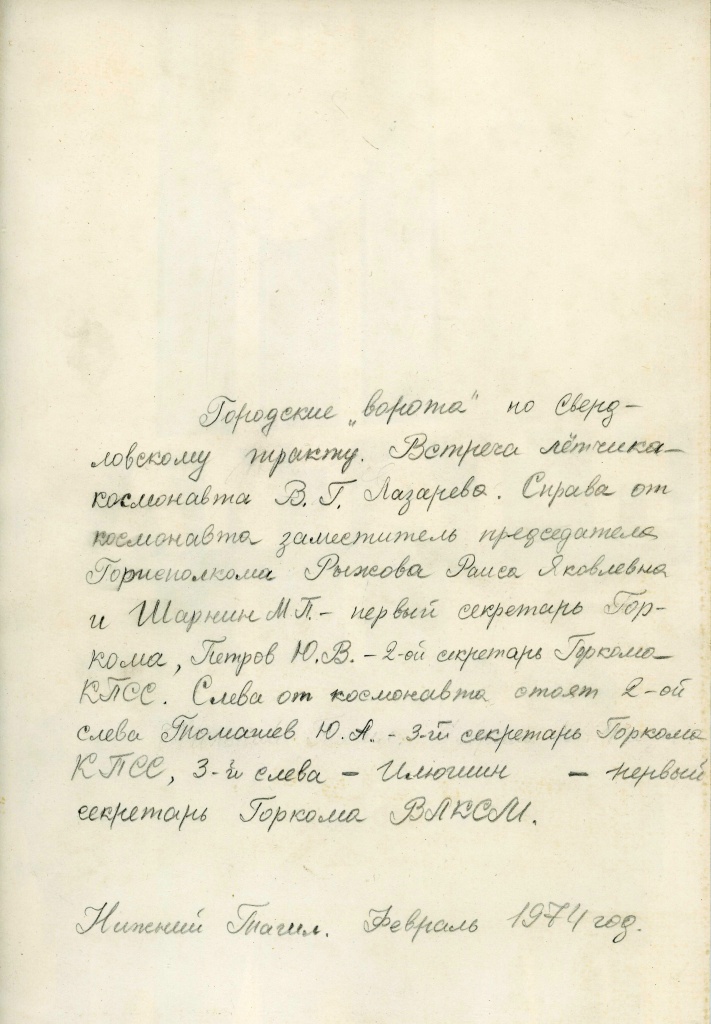 Городские „ворота" по Сверд-
ловскому тракту. Встреча лётчика-
космонавта В. Г. Лазарева. Справа от
космонавта заместитель председателя
Горисполкома Рыжова Раиса Яковлевна
и Шарнин М.П. - первый секретарь Гор-
кома, Петров Ю.В. - 2-ой секретарь Горкома
КПСС. Слева от космонавта стоят 2-ой
слева Томашев Ю.А. - 3-ий секретарь Горкома
КПСС, 3-й слева - Илюшин - первый
секретарь Горкома ВЛКСМ.
Нижний Тагил. Февраль 1974 год.